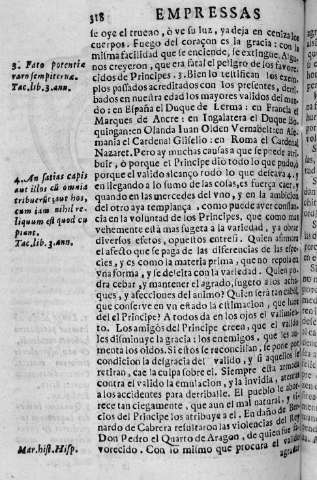 318 EMPRESSAS
se oye el trueno, ò ve su luz, ya deja en ceniza los
cuerpos. Fuego del coraçon es la gracia: con la
misma facilidad que se enciende, se extingue. Algu-
nos creyeron, que era fatal el peligro de los favore-
cidos de Principes. 3. Bien lo testifican los exem-
plos passados acreditados con los presentes, derri-
bados en nuestra edad los mayores validos del mun-
do: en España el Duque de Lerma: en Francia el
Marquès de Ancre: en Ingalatera el Duque Bo-
quingan: en Olanda Iuan Olden Vernabelt: en Ale-
mania el Cardenal Gliselio: en Roma el Cardenal
Nazaret. Pero ay muchas causas a que se puede atri-
buir, ò porque el Principe diò todo lo que pudo,
porque el valido alcançò todo lo que deseava 4,
en llegando a lo sumo de las cosas, es fuerça caer, y
quando en las mercedes del vno, y en la ambicion
del otro aya templança, como puede aver constan-
cia en la voluntad de los Principes, que como mas
vehemente està mas sugeta a la variedad, y a obrar
diversos efetos, opuestos entresi. Quien afirmarà
el afecto que se paga de las diferencias de las espe-
cies, y es como la materia prima, que no reposa en
vna forma, y se deleita con la variedad. Quien po-
drà cebar, y mantener el agrado, sugeto a los acha-
ques, y afecciones del animo? Quien serà tan cabal,
que conserve en vn estado la estimacion, que haze
del el Principe? A todos da en los ojos el valimien-
to. Los amigos del Principe creen, que el valido
les disminuye la gracia: los enemigos, que les au-
menta los odios. Si estos se reconcilian, se pone por
condicion la desgracia del valido, y si aquellos se
retiran, cae la culpa sobre el. Siempre està armada
contra el valido la emulacion, y la invidia, atentas
a los accidentes para derriballe. El pueblo le abor-
rece tan ciegamente, que aun el mal natural, y vi-
cios del Principe los atribuye a el. En daño de Ber-
nardo de Cabrera resultaron las violencias del Rey
Don Pedro el Quarto de Aragon, de quien fue fa-
vorecido. Con lo mismo que procura el valido
agradar
3. Fato potentiæ
raro sempiternæ.
Tac. lib. 3. ann.
4. An satias capit
aut illos cùm omnia
tribuerût, aut hos,
cum iam nihil re-
liquum est quod cu-
piant.
Tac. lib. 3. ann.
Mar. hist. Hisp.